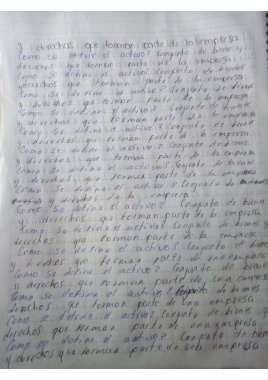 y derechos que forman parte de la empresa
Como se define el activo? Conjunto de bienes y
derechos que forman parte de la empresa
Como se define el activo? Conjunto de bienes
y derechos que forman parte de la empresa
Como se define el activo? Conjunto de bienes
y derechos que forman parte de la empresa
Como se define el activo? Conjunto de bienes
y derechos que forman parte de la empresa
Como se define el activo? Conjunto de bienes
y derechos que forman parte de la empresa
Como se define el activo? Conjunto de bienes
y derechos que forman parte de la empresa
Como se define el activo? Conjunto de bienes
y derechos que forman parte de la empresa
Como se define el activo? Conjunto de
y derechos de la empresa
Como se define el activo? Conjunto de bienes
y derechos que forman parte de la empresa
Como se define el activo? Conjunto de bienes
y derechos que forman parte de la empresa
Como se define el activo? Conjunto de bienes
y derechos que forman parte de una empresa
Como se define el activo? Conjunto de bienes
y derechos que forman parte de una empresa
Como se define el activo? Conjunto de bienes y
derechos que forman parte de una empresa
Como se define el activo? Conjunto de bienes y
derechos que forman parte de una empresa
Como se define el activo? Conjunto de bienes
y derechos que forman parte de una empresa